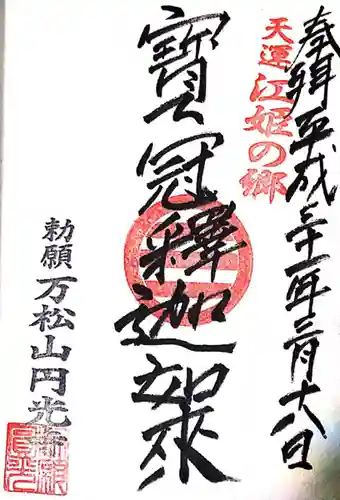 奉拝 平成三十一年三月十六日
天運 江姫の郷
寳冠釋迦如來
勅願 万松山円光寺